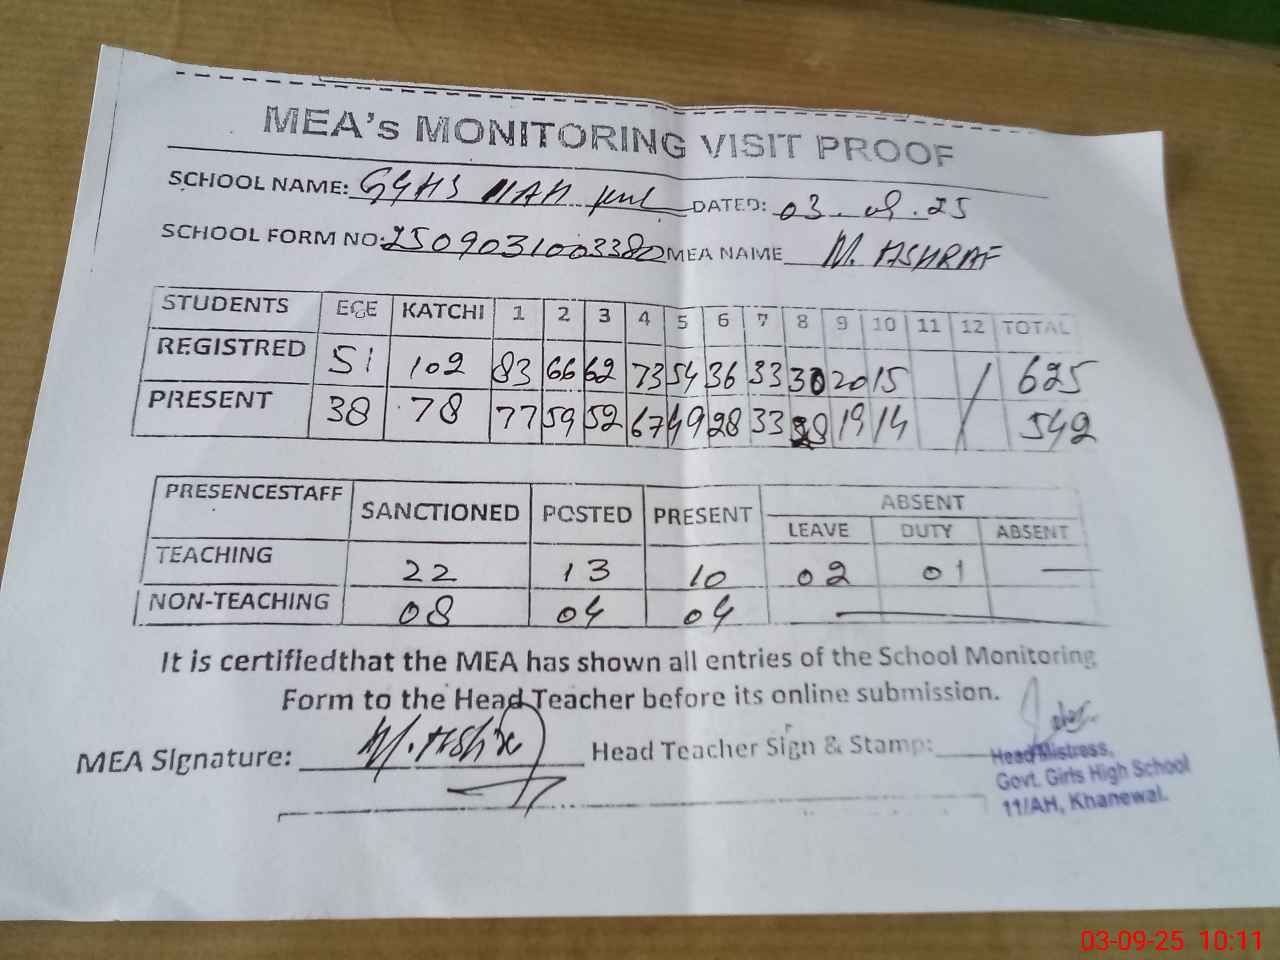 MEA's MONITORING VISIT PROOF
SCHOOL NAME: GGHS 11AH DATED: 03.09.25
SCHOOL FORM NO: 2509031003380 MEA NAME M. ASHRAF
STUDENTS ECE KATCHI 1 2 3 4 5 6 7 8 9 10 11 12 TOTAL
REGISTRED 51 102 83 66 62 73 54 36 33 30 20 15 / 625
PRESENT 38 78 77 59 52 67 49 28 33 28 19 14 542
PRESENCESTAFF SANCTIONED POSTED PRESENT ABSENT
LEAVE DUTY ABSENT
TEACHING 22 13 10 02 01 —
NON-TEACHING 08 04 04 —
It is certifiedthat the MEA has shown all entries of the School Monitoring
Form to the Head Teacher before its online submission.
MEA Signature: M. Ashraf Head Teacher Sign & Stamp:
Head Mistress,
Govt. Girls High School
11/AH, Khanewal.
03-09-25 10:11